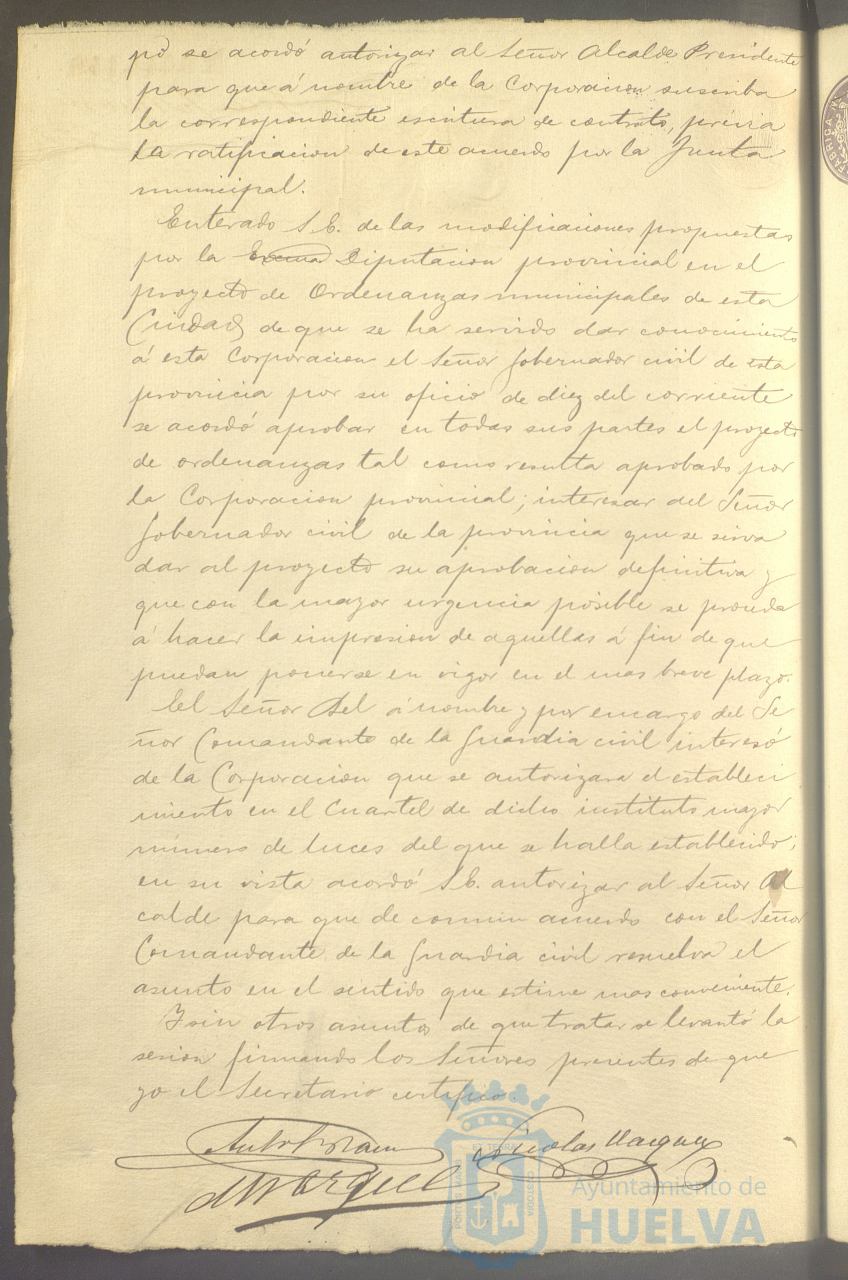 pó se acordó autorizar al Señor Alcalde Presidente
para que á nombre de la Corporacion suscriba
la correspondiente escritura de contrato, prévia
la ratificacion de este acuerdo por la Junta
municipal.
Enterado S. E. de las modificaciones propuestas
por la Excma Diputacion provincial en el
proyecto de Ordenanzas municipales de esta
Ciudad, de que se ha servido dar conocimiento
á esta Corporacion el Señor Gobernador civil de esta
provincia por su oficio de diez del corriente
se acordó aprobar en todas sus partes el proyecto
de ordenanzas tal como resulta aprobado por
la Corporacion provincial; interesar del Señor
Gobernador civil de la provincia que se sirva
dar al proyecto su aprobacion definitiva y
que con la mayor urgencia posible se proceda
á hacer la impresion de aquellas á fin de que
puedan ponerse en vigor en el mas breve plazo.
El Señor Bel á nombre y por encargo del Se
ñor Comandante de la Guardia civil interesó
de la Corporacion que se autorizara el estableci
miento en el Cuartel de dicho instituto mayor
número de luces del que se halla establecido;
en su vista acordó S. E. autorizar al Señor Al
calde para que de comun acuerdo con el Señor
Comandante de la Guardia civil resuelva el
asunto en el sentido que estime mas conveniente.
Y sin otros asuntos de que tratar se levantó la
sesion firmando los Señores presentes de que
yo el Secretario certifico.
Nicolas Vazquez
Marquez
Ayuntamiento de
HUELVA